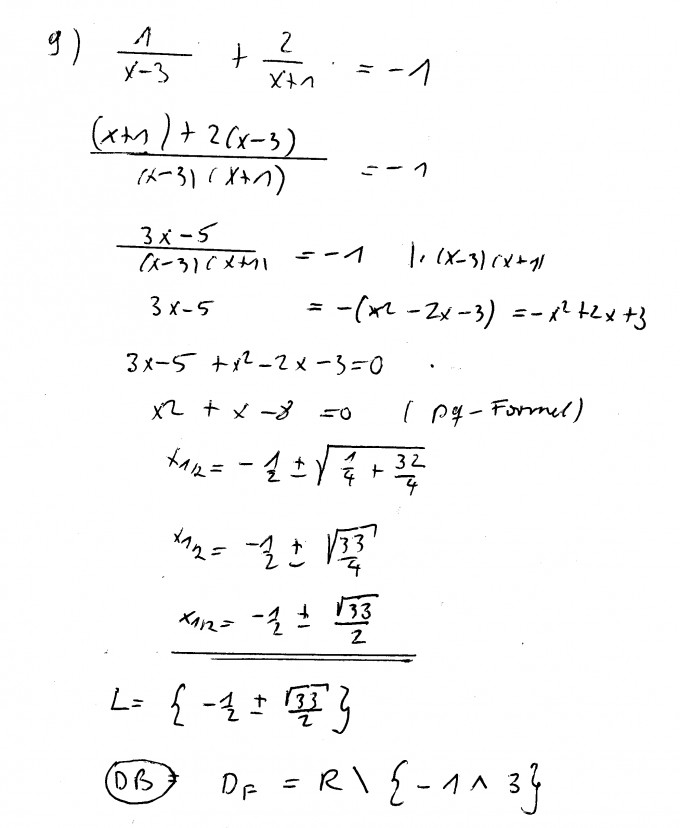 g) 1/(x-3) + 2/(x+1) = -1
((x+1) + 2(x-3))/((x-3)(x+1)) = -1
(3x-5)/((x-3)(x+1)) = -1 |· (x-3)(x+1)
3x-5 = -(x2 - 2x - 3) = -x² + 2x + 3
3x-5 + x² - 2x - 3 = 0
x2 + x - 8 = 0 (pq-Formel)
x1/2 = -1/2 ± √(1/4 + 32/4)
x1/2 = -1/2 ± √(33/4)
x1/2 = -1/2 ± √33/2
L = { -1/2 ± √33/2 }
DB: DF = R \ { -1 ∧ 3 }